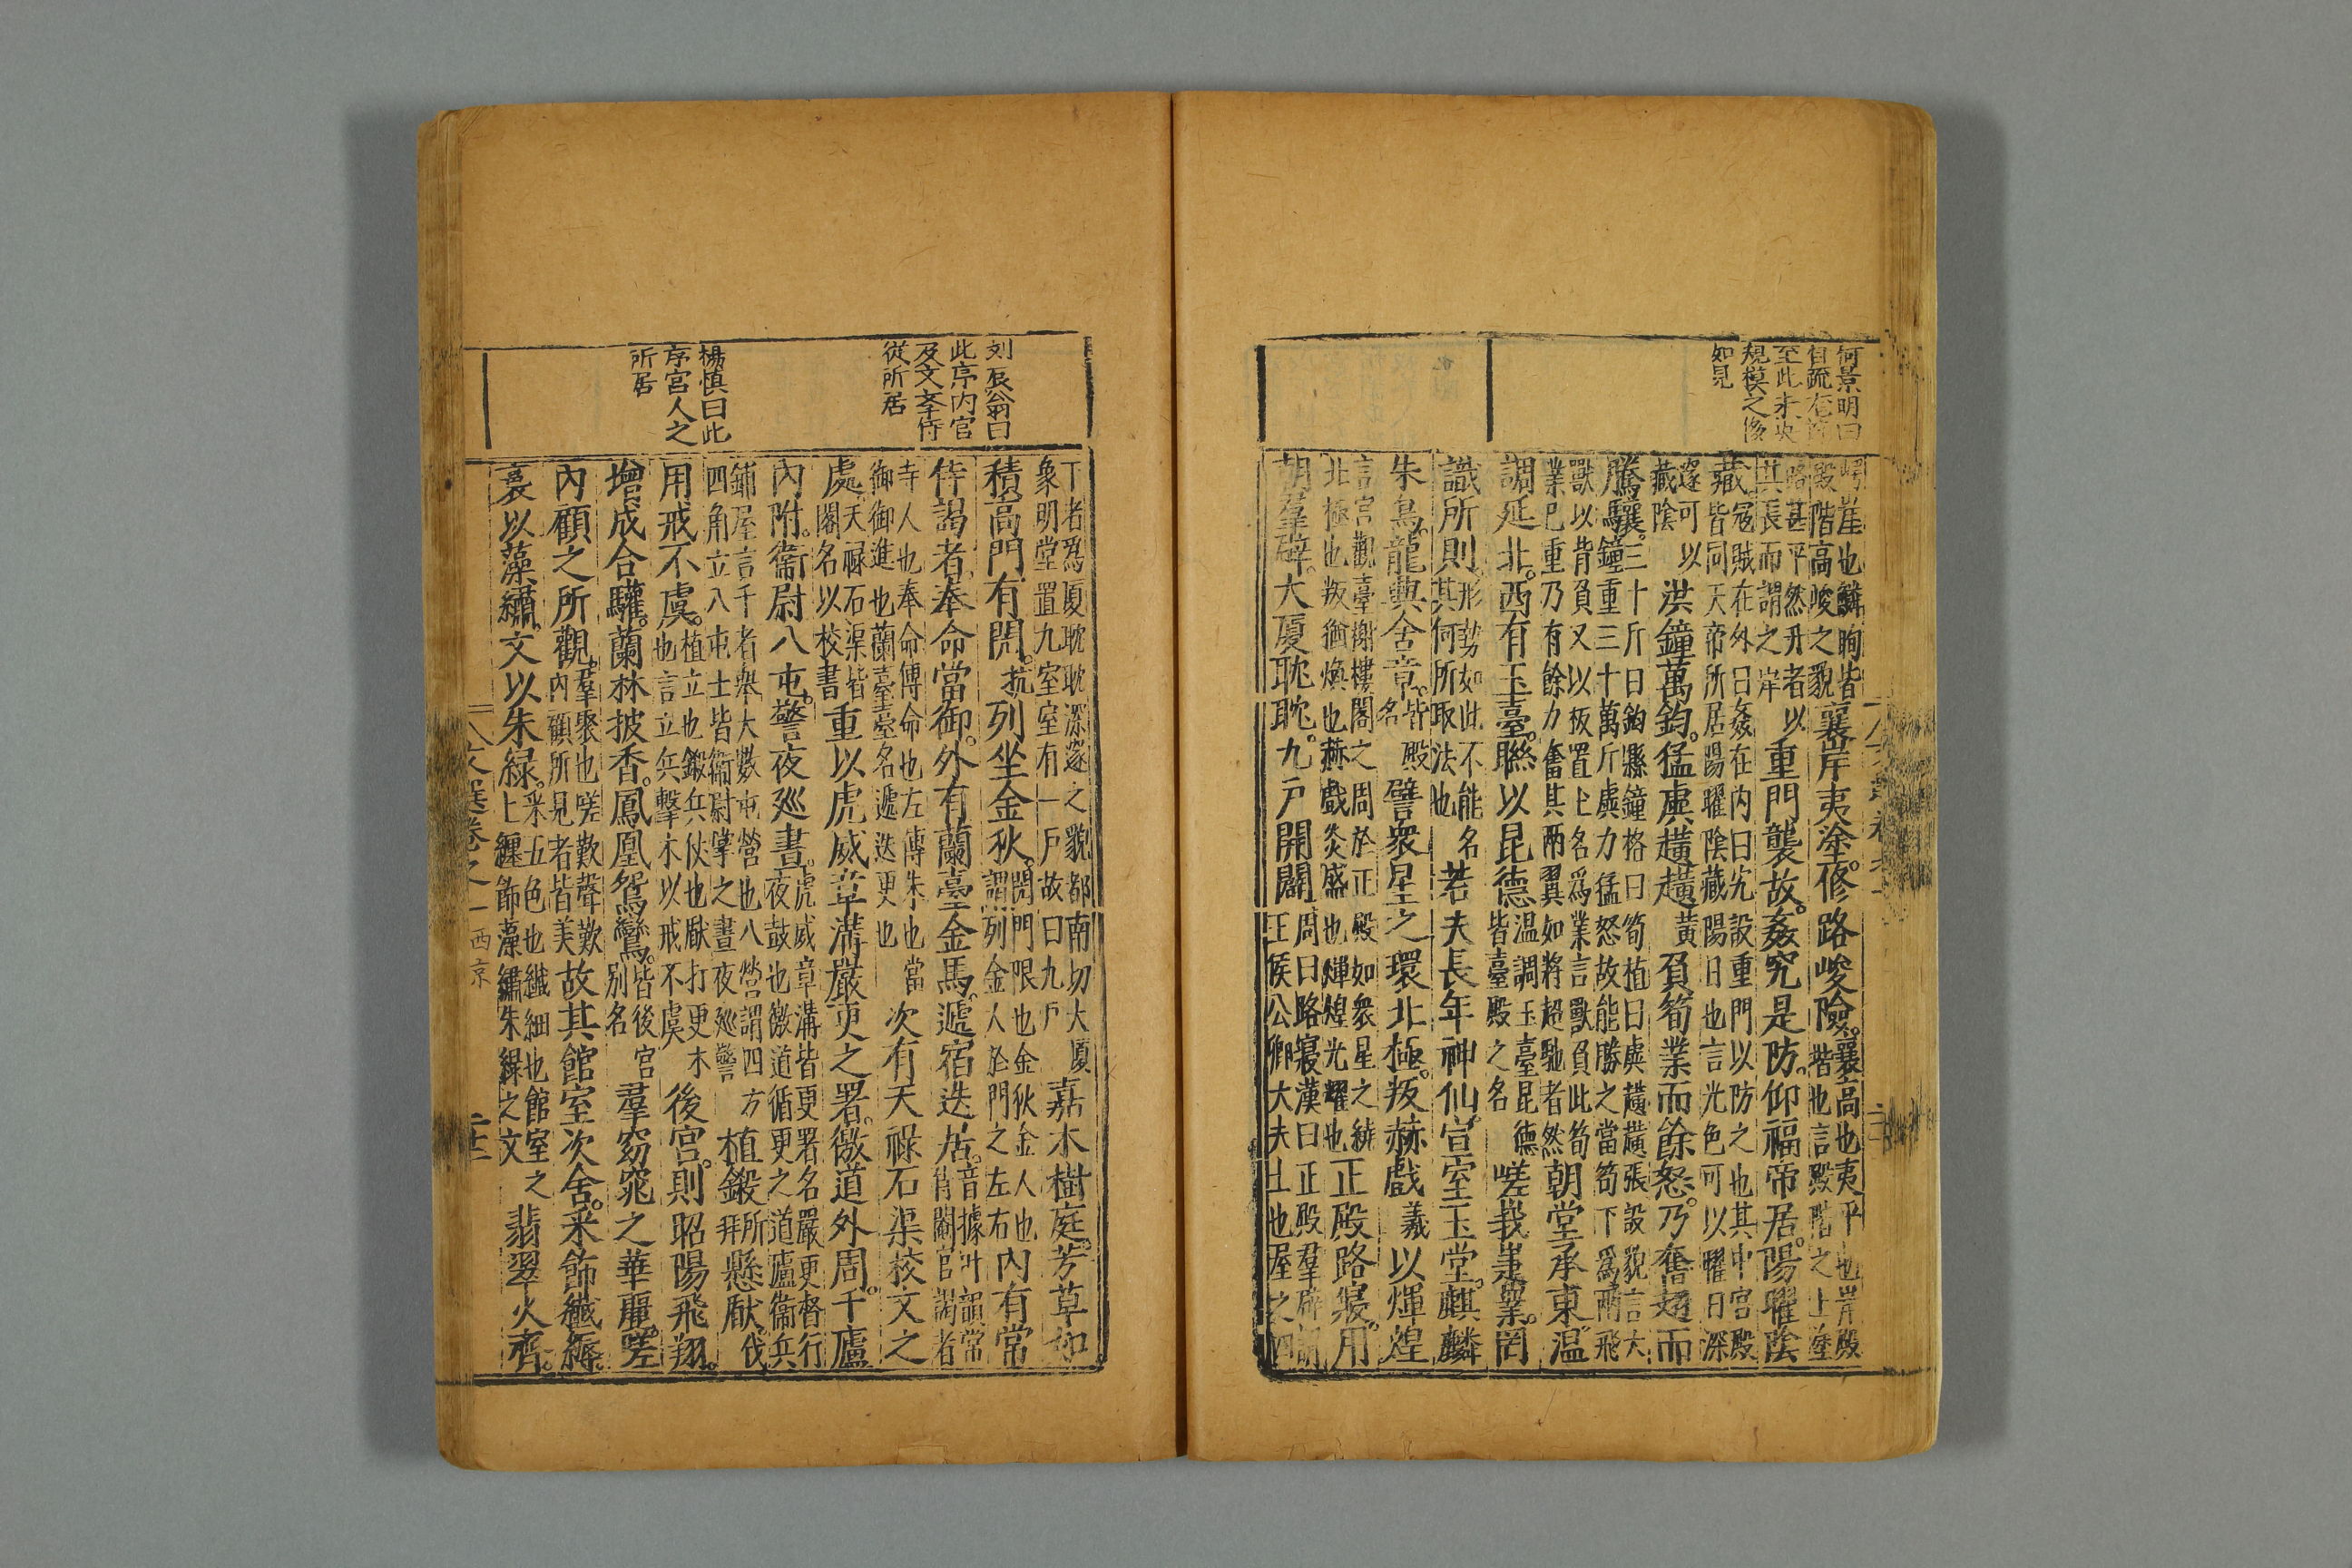 何景明曰
自疏有
至此未央
規模之後
如見
崿崖也鱗眴皆襄岸夷塗。脩路峻險。襄高也夷平也岸殿
殿階高峻之貌階也言殿階之上塗
路甚平然升者以重門襲故。姦宄是防。仰福帝居。陽曜陰
其長而謂之岸
藏。寇賊在外曰姦在内曰宄設重門以防之也其中宮殿
皆同天帝所居陽曜陰藏陽日也言光色可以曜日深
邃可以藏陰洪鐘萬鈞。猛虡趪趪黄負筍業而餘怒。乃奮翅而
騰驤。三十斤曰鈞縣鐘格曰筍植曰虡趪趪張設貌言大
鐘重三十萬斤虡力猛怒故能勝之當筍下爲兩飛
獸以背負又以板置上名爲業言獸負此筍
業已重乃有餘力奮其兩翼如將超馳者然朝堂承東。温
調延北。西有玉臺。聯以昆德温調玉臺昆德皆臺殿之名嵯峩崨嶪。罔
識所則。形勢如此不能名其何所取法也若夫長年神仙。宣室玉堂。麒麟
朱鳥。龍興含章。皆殿名譬衆星之環北極。叛赫戲羲以煇煌
言宮觀臺榭樓閣之周於正殿如衆星之繞
北極也叛猶煥也赫戲炎盛也煇煌光耀也正殿路寢。用
朝羣辟。大厦耽耽。九戸開闢。周曰路寢漢曰正殿羣辟謂
王侯公卿大夫士也屋之四
刘辰翁曰
此序内官
及文孝侍
從所居
楊慎曰此
序宮人之
所居
下者爲厦耽耽深邃之貌都南切大厦
象明堂置九室室有一戸故曰九戸嘉木樹庭。芳草如
積。高門有閌。抗列坐金狄。閌門限也金狄金人也
謂列金人於門之左右内有常
侍謁者奉命當御。外有蘭臺金馬。遞宿迭居。音據叶韻常
侍閹官謁者
寺人也奉命傳命也左傳朱也當
御御進也蘭臺臺名遞迭更也次有天禄石渠校文之
處。天禄石渠皆
閣名以校書重以虎威章溝嚴更之署。徼道外周。千廬
内附。衞尉八屯。警夜廵晝。虎威章溝皆更署名嚴更督行
夜鼓也徼道循更之道廬衞兵
鋪屋言千者舉大數屯營也八營謂四方
四角立八屯士皆衞尉掌之晝夜廵警植鎩所拜懸瞂。伐
用戒不虞。植立也鎩兵仗也瞂打更木
也言立兵擊木以戒不虞後宮。則昭陽飛翔。
增成合驩。蘭林披香。鳳凰鴛鸞。皆後宮
别名羣窈窕之華麗。嗟
内顧之所觀。羣聚也嗟歎聲歎
内顧所見者皆美故其館室次舍。采飾纖縟。
裛以藻繡。文以朱緑。采五色也纖細也館室之
上纏飾藻繡朱緑之文翡翠火齊。
文選卷之一 西京
二十二